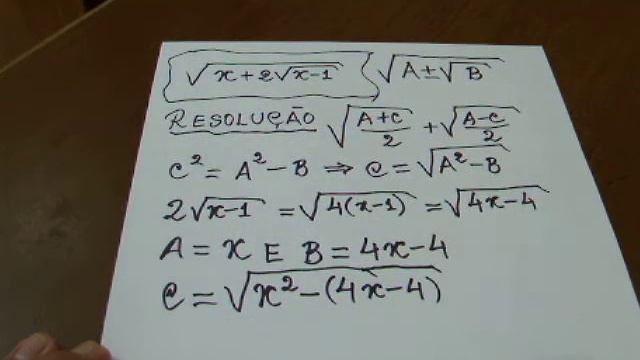 √(x+2√(x-1)) √(A±√B)
RESOLUÇÃO √((A+C)/2) + √((A-C)/2)
C² = A² - B ⇒ C = √(A² - B)
2√(x-1) = √(4(x-1)) = √(4x-4)
A = x E B = 4x-4
C = √(x² - (4x-4))